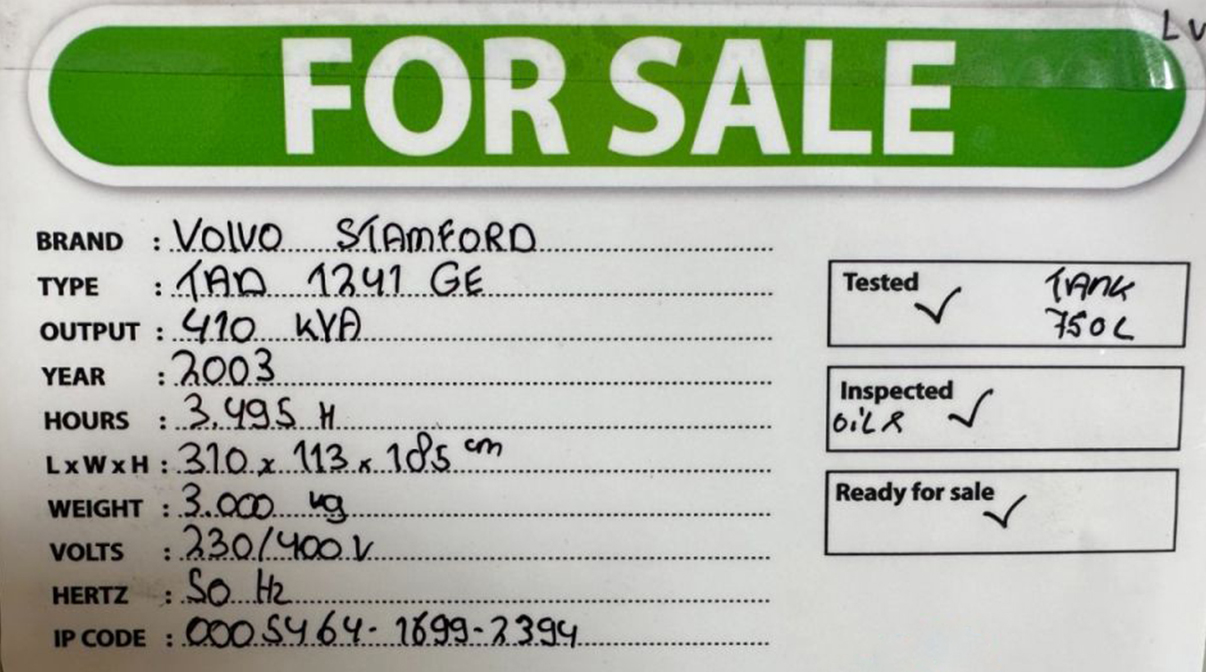 FOR SALE
BRAND : VOLVO STAMFORD
TYPE : TAD 1241 GE
OUTPUT : 410 kVA
YEAR : 2003
HOURS : 3.495 H
L x W x H : 310 x 113 x 185 cm
WEIGHT : 3.000 kg
VOLTS : 230/400 V
HERTZ : 50 Hz
IP CODE : 0005464-1699-2394
Tested ✓ TANK
750L
Inspected ✓
Ready for sale ✓